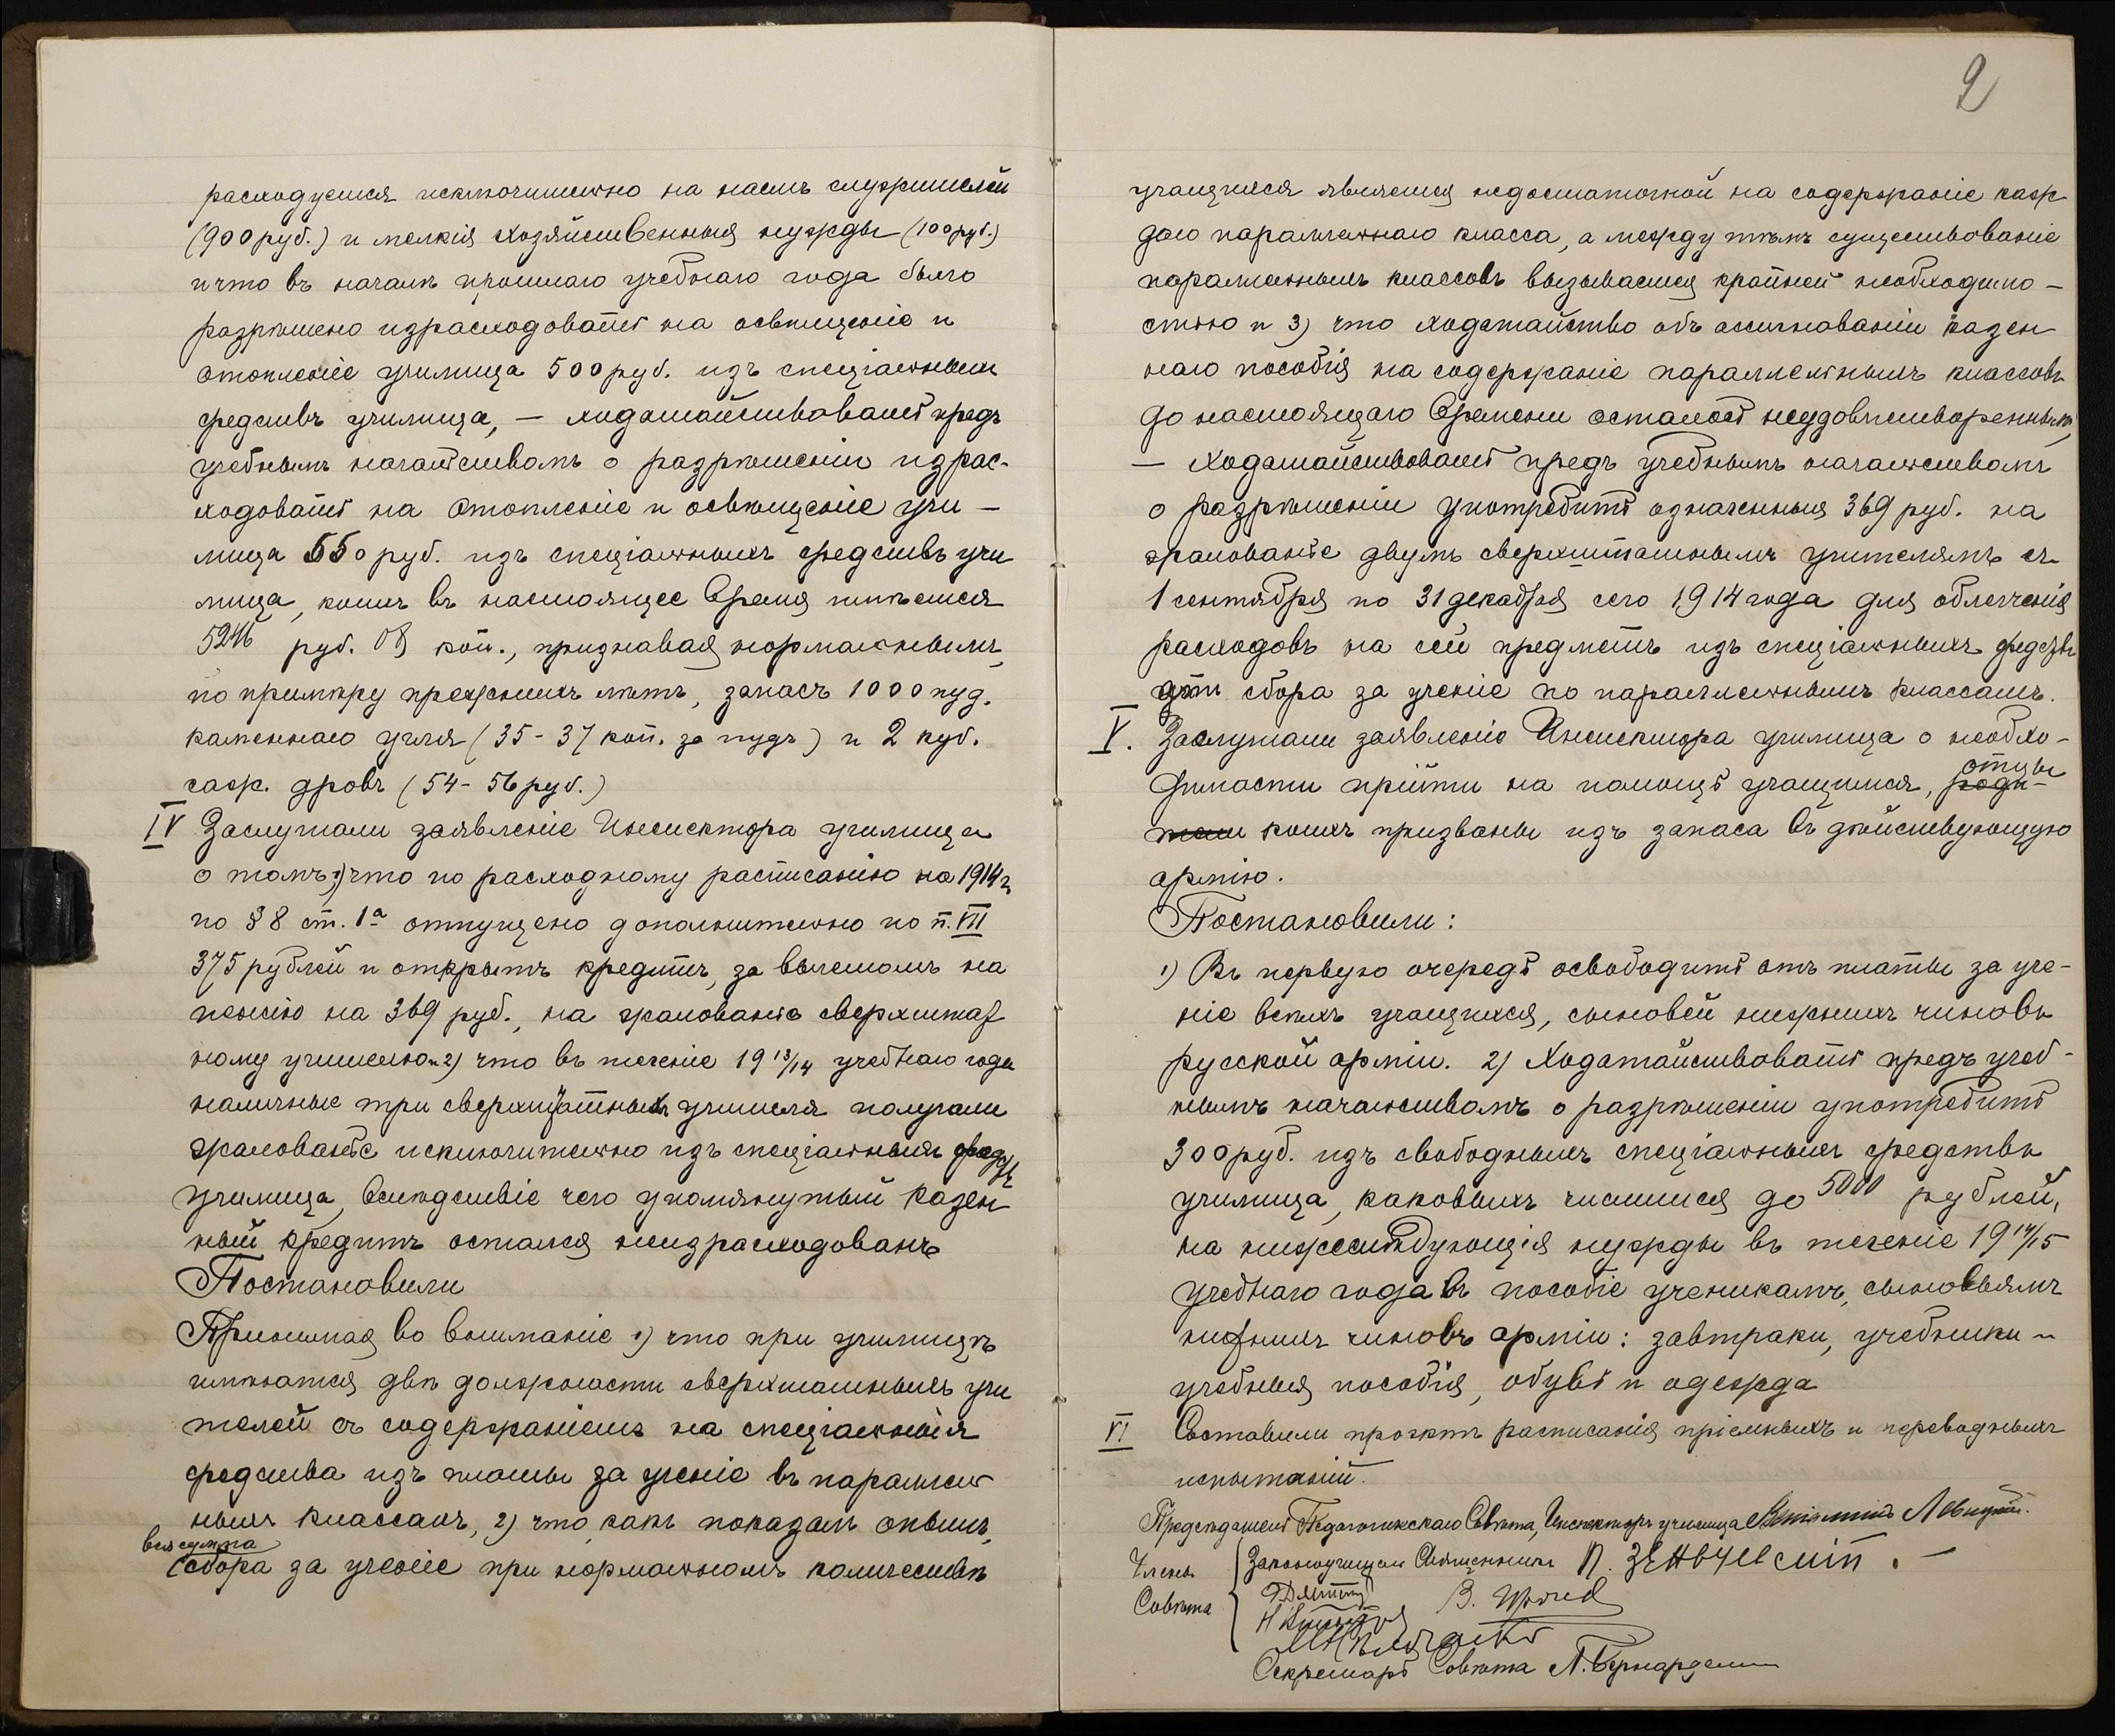 расходуется исключительно на наемъ служителей
(900 руб.) и мелкія хозяйственныя нужды (100 руб.)
и что въ началѣ прошлаго учебнаго года было
разрѣшено израсходовать на освѣщеніе и
отопленіе училища 500 руб. изъ спеціальныхъ
средствъ училища, — ходатайствовать предъ
учебнымъ начальствомъ о разрѣшеніи израс-
ходовать на отопленіе и освѣщеніе учи-
лища 550 руб. изъ спеціальныхъ средствъ учи
лища, коихъ въ настоящее время имѣется
5246 руб. 08 коп., признавая нормальнымъ,
по примѣру прежнихъ лѣтъ, запасъ 1000 пуд.
каменнаго угля (35-37 коп. за пудъ) и 2 куб.
саж. дровъ (54-56 руб.)
IV Заслушали заявленіе Инспектора училища
о томъ: 1) что по расходному расписанію на 1914 г.
по § 8 ст. 1а отпущено дополнительно по п. VII
375 рублей и открытъ кредитъ, за вычетомъ на
пенсію на 369 руб., на жалованье сверхштат
ному учителю и 2) что въ теченіе 1913/14 учебнаго года
наличные три сверхштатныхъ учителя получали
жалованье исключительно изъ спеціальныхъ средствъ
училища, вслѣдствіе чего упомянутый казен
ный кредитъ остался неизрасходованъ
Постановили
Принимая во вниманіе 1) что при училищѣ
имѣются двѣ должности сверхштатныхъ учи
телей съ содержаніемъ на спеціальныя
средства изъ платы за ученіе въ параллель
ныхъ классахъ, 2) что, какъ показалъ опытъ,
вся сумма
сбора за ученіе при нормальномъ количествѣ
2
учащихся является недостаточной на содержаніе каж
даго параллельнаго класса, а между тѣмъ существованіе
параллельныхъ классовъ вызывается крайней необходимо-
стью и 3) что ходатайство объ ассигнованіи казен
наго пособія на содержаніе параллельныхъ классовъ
до настоящаго времени осталось неудовлетвореннымъ,
— ходатайствовать предъ учебнымъ начальствомъ
о разрѣшеніи употребить означенныя 369 руб. на
жалованье двумъ сверхштатнымъ учителямъ съ
1 сентября по 31 декабря сего 1914 года для облегченія
расходовъ на сей предметъ изъ спеціальныхъ средствъ
сбора за ученіе по параллельнымъ классамъ.
V. Заслушали заявленіе Инспектора училища о необхо-
димости прійти на помощь учащимся, роди-
отцы
тели коихъ призваны изъ запаса въ дѣйствующую
армію.
Постановили:
1) Въ первую очередь освободить отъ платы за уче-
ніе всѣхъ учащихся, сыновей нижнихъ чиновъ
русской арміи. 2) Ходатайствовать предъ учеб-
нымъ начальствомъ о разрѣшеніи употребить
300 руб. изъ свободныхъ спеціальныхъ средствъ
училища, каковыхъ числится до 5000 рублей,
на нижеслѣдующія нужды въ теченіе 1914/15
учебнаго года въ пособіе ученикамъ, сыновьямъ
нижнихъ чиновъ арміи: завтраки, учебники и
учебныя пособія, обувь и одежда
VI Составили проэктъ расписанія пріемныхъ и переводныхъ
испытаній.
Предсѣдатель Педагогическаго Совѣта, Инспекторъ училища Левицкій.
Члены Законоучитель Священникъ П.
Совѣта
В.
Секретарь Совѣта